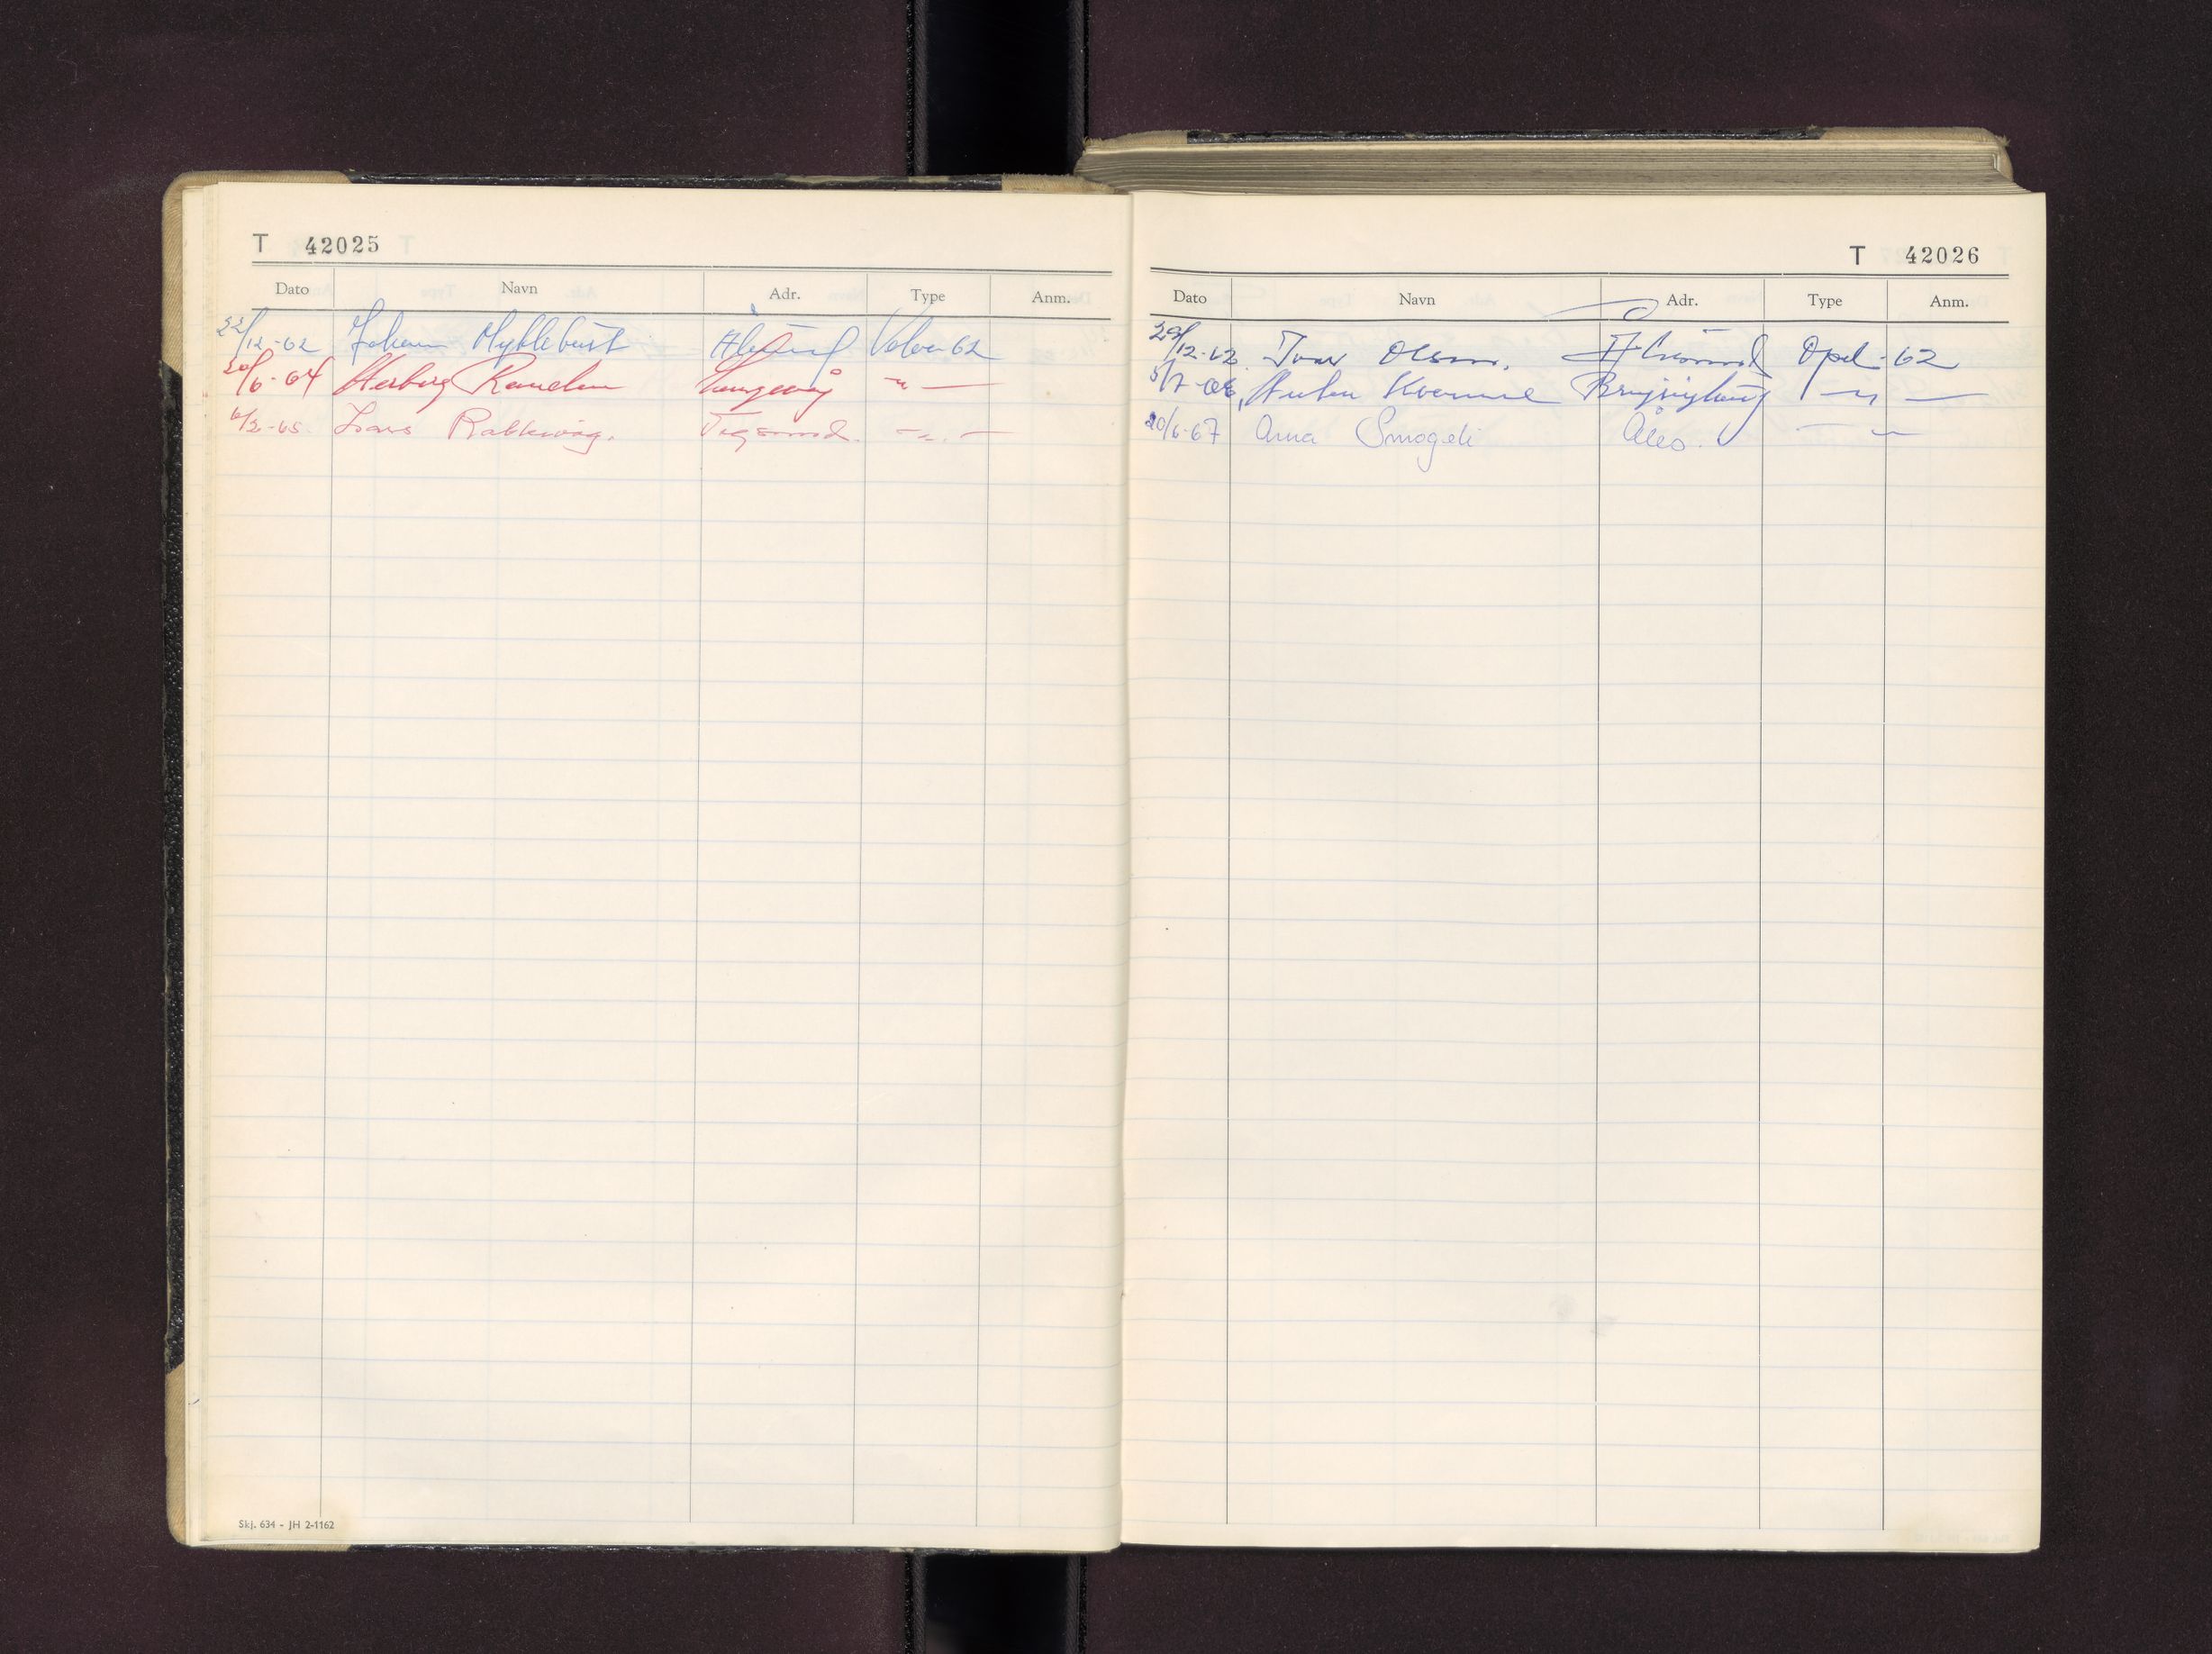 T 42025
Dato Navn Adr. Type Anm.
22/12-62 Johan Myklebust Ålesund Volvo 62
20/6-64 Herborg Langevåg -"-
6/2-65 Lars Rabbevåg. -"-
Skj. 634 - JH 2-1162
T 42026
Dato Navn Adr. Type Anm.
29/12-62 Ivar Olsen. Ålesund Opel -62
5/7- Brusdalen -"-
20/6-67 Anna Smogeli Åles. -"-